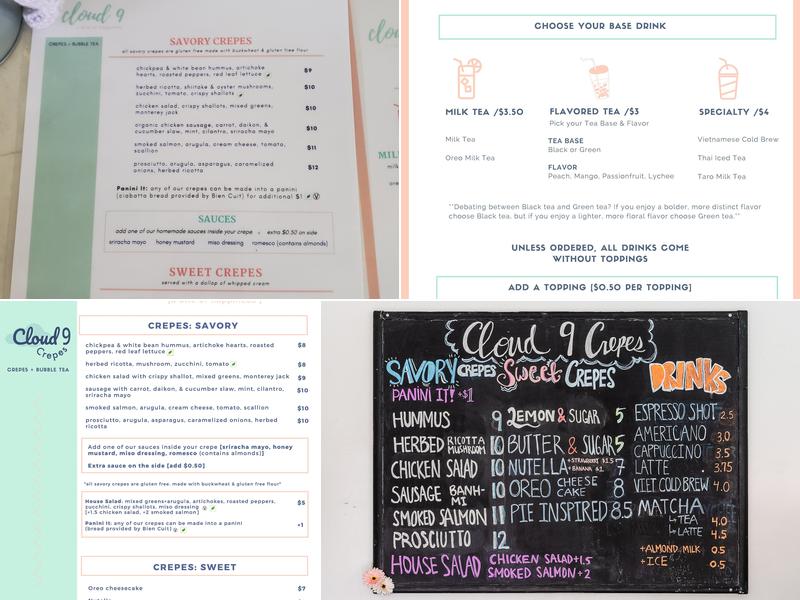 cloud 9
CREPES + BUBBLE TEA
SAVORY CREPES
all savory crepes are gluten free made with buckwheat & gluten free flour
chickpea & white bean hummus, artichoke
hearts, roasted peppers, red leaf lettuce
$9
herbed ricotta, shiitake & oyster mushrooms,
zucchini, tomato, crispy shallots
$10
chicken salad, crispy shallots, mixed greens,
monterey jack
$10
organic chicken sausage, carrot, daikon, &
cucumber slaw, mint, cilantro, sriracha mayo
$10
smoked salmon, arugula, cream cheese, tomato,
scallion
$11
prosciutto, arugula, asparagus, caramelized
onions, herbed ricotta
$12
Panini It: any of our crepes can be made into a panini
(ciabatta bread provided by Bien Cuit) for additional $1
SAUCES
add one of our homemade sauces inside your crepe , extra $0.50 on side
sriracha mayo honey mustard miso dressing romesco (contains almonds)
SWEET CREPES
served with a dollop of whipped cream
CHOOSE YOUR BASE DRINK
MILK TEA /$3.50
Milk Tea
Oreo Milk Tea
FLAVORED TEA /$3
Pick your Tea Base & Flavor
TEA BASE
Black or Green
FLAVOR
Peach, Mango, Passionfruit, Lychee
SPECIALTY /$4
Vietnamese Cold Brew
Thai Iced Tea
Taro Milk Tea
**Debating between Black tea and Green tea? If you enjoy a bolder, more distinct flavor
choose Black tea, but if you enjoy a lighter, more floral flavor choose Green tea.**
UNLESS ORDERED, ALL DRINKS COME
WITHOUT TOPPINGS
ADD A TOPPING [$0.50 PER TOPPING]
Cloud 9
Crepes
CREPES + BUBBLE TEA
CREPES: SAVORY
chickpea & white bean hummus, artichoke hearts, roasted
peppers, red leaf lettuce
$8
herbed ricotta, mushroom, zucchini, tomato
$8
chicken salad with crispy shallot, mixed greens, monterey jack
$9
sausage with carrot, daikon, & cucumber slaw, mint, cilantro,
sriracha mayo
$10
smoked salmon, arugula, cream cheese, tomato, scallion
$10
prosciutto, arugula, asparagus, caramelized onions, herbed
ricotta
$10
Add one of our sauces inside your crepe [sriracha mayo, honey
mustard, miso dressing, romesco (contains almonds)]
Extra sauce on the side [add $0.50]
*all savory crepes are gluten free. made with buckwheat & gluten free flour*
House Salad: mixed greens+arugula, artichokes, roasted peppers,
zucchini, crispy shallots, miso dressing
[+1.5 chicken salad, +2 smoked salmon]
$5
Panini It: any of our crepes can be made into a panini
(bread provided by Bien Cuit)
+1
CREPES: SWEET
Oreo cheesecake
$7
Cloud 9 Crepes
SAVORY CREPES
PANINI IT! +$1
HUMMUS 9
HERBED RICOTTA MUSHROOM 10
CHICKEN SALAD 10
SAUSAGE BANH-MI 10
SMOKED SALMON 11
PROSCIUTTO 12
HOUSE SALAD CHICKEN SALAD+1.5
SMOKED SALMON +2
Sweet CREPES
LEMON & SUGAR 5
BUTTER & SUGAR 5
NUTELLA +STRAWBERRY $1.5 +BANANA $1 7
OREO CHEESE CAKE 8
PIE INSPIRED 8.5
DRINKS
ESPRESSO SHOT 2.5
AMERICANO 3.0
CAPPUCCINO 3.5
LATTE 3.75
VIET COLD BREW 4.0
MATCHA
TEA 4.0
LATTE 4.5
+ALMOND MILK 0.5
+ICE 0.5